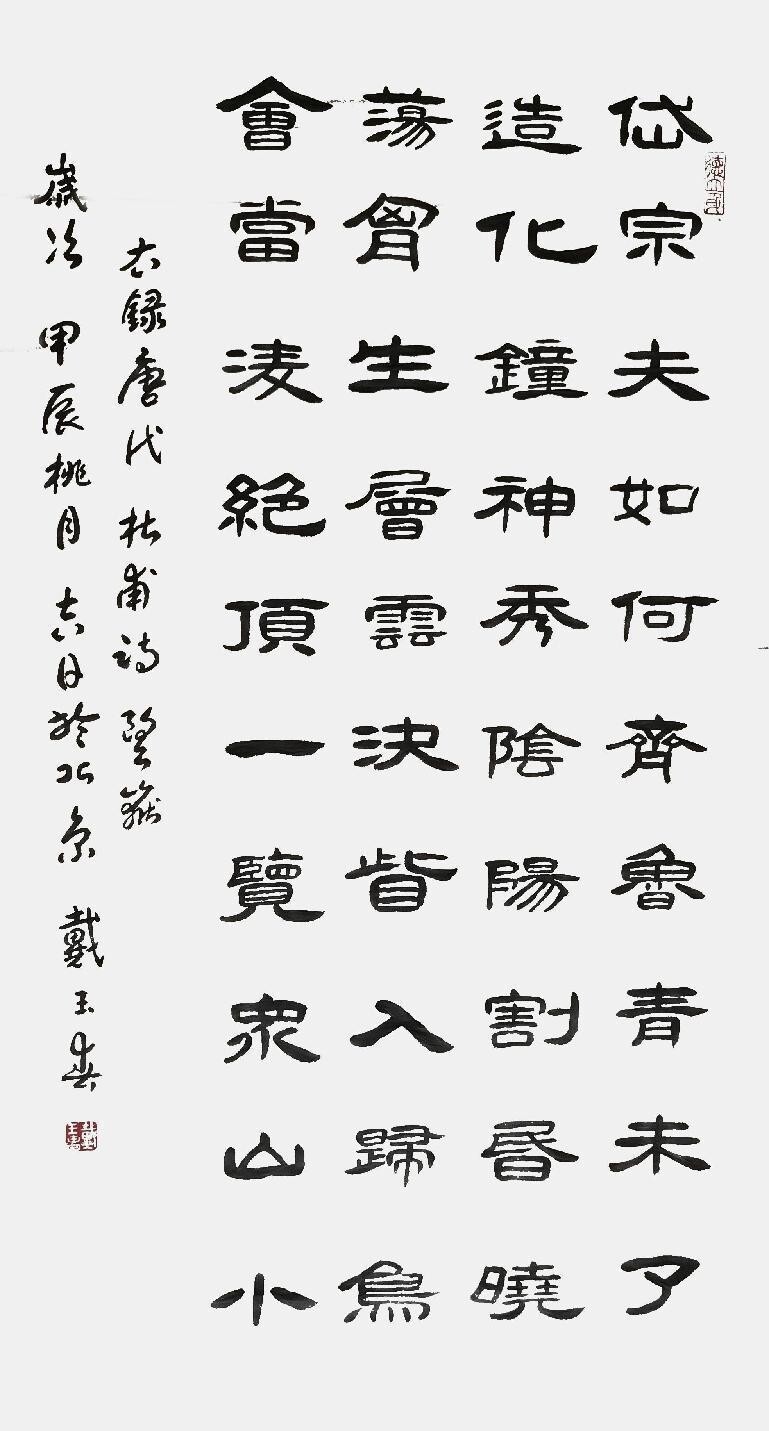 岱宗夫如何齊魯青未了
造化鐘神秀陰陽割昏曉
蕩胷生層雲決眥入歸鳥
會當凌絕頂一覽衆山小
右録唐代杜甫詩望嶽
歲次甲辰桃月六日於北京 戴玉春